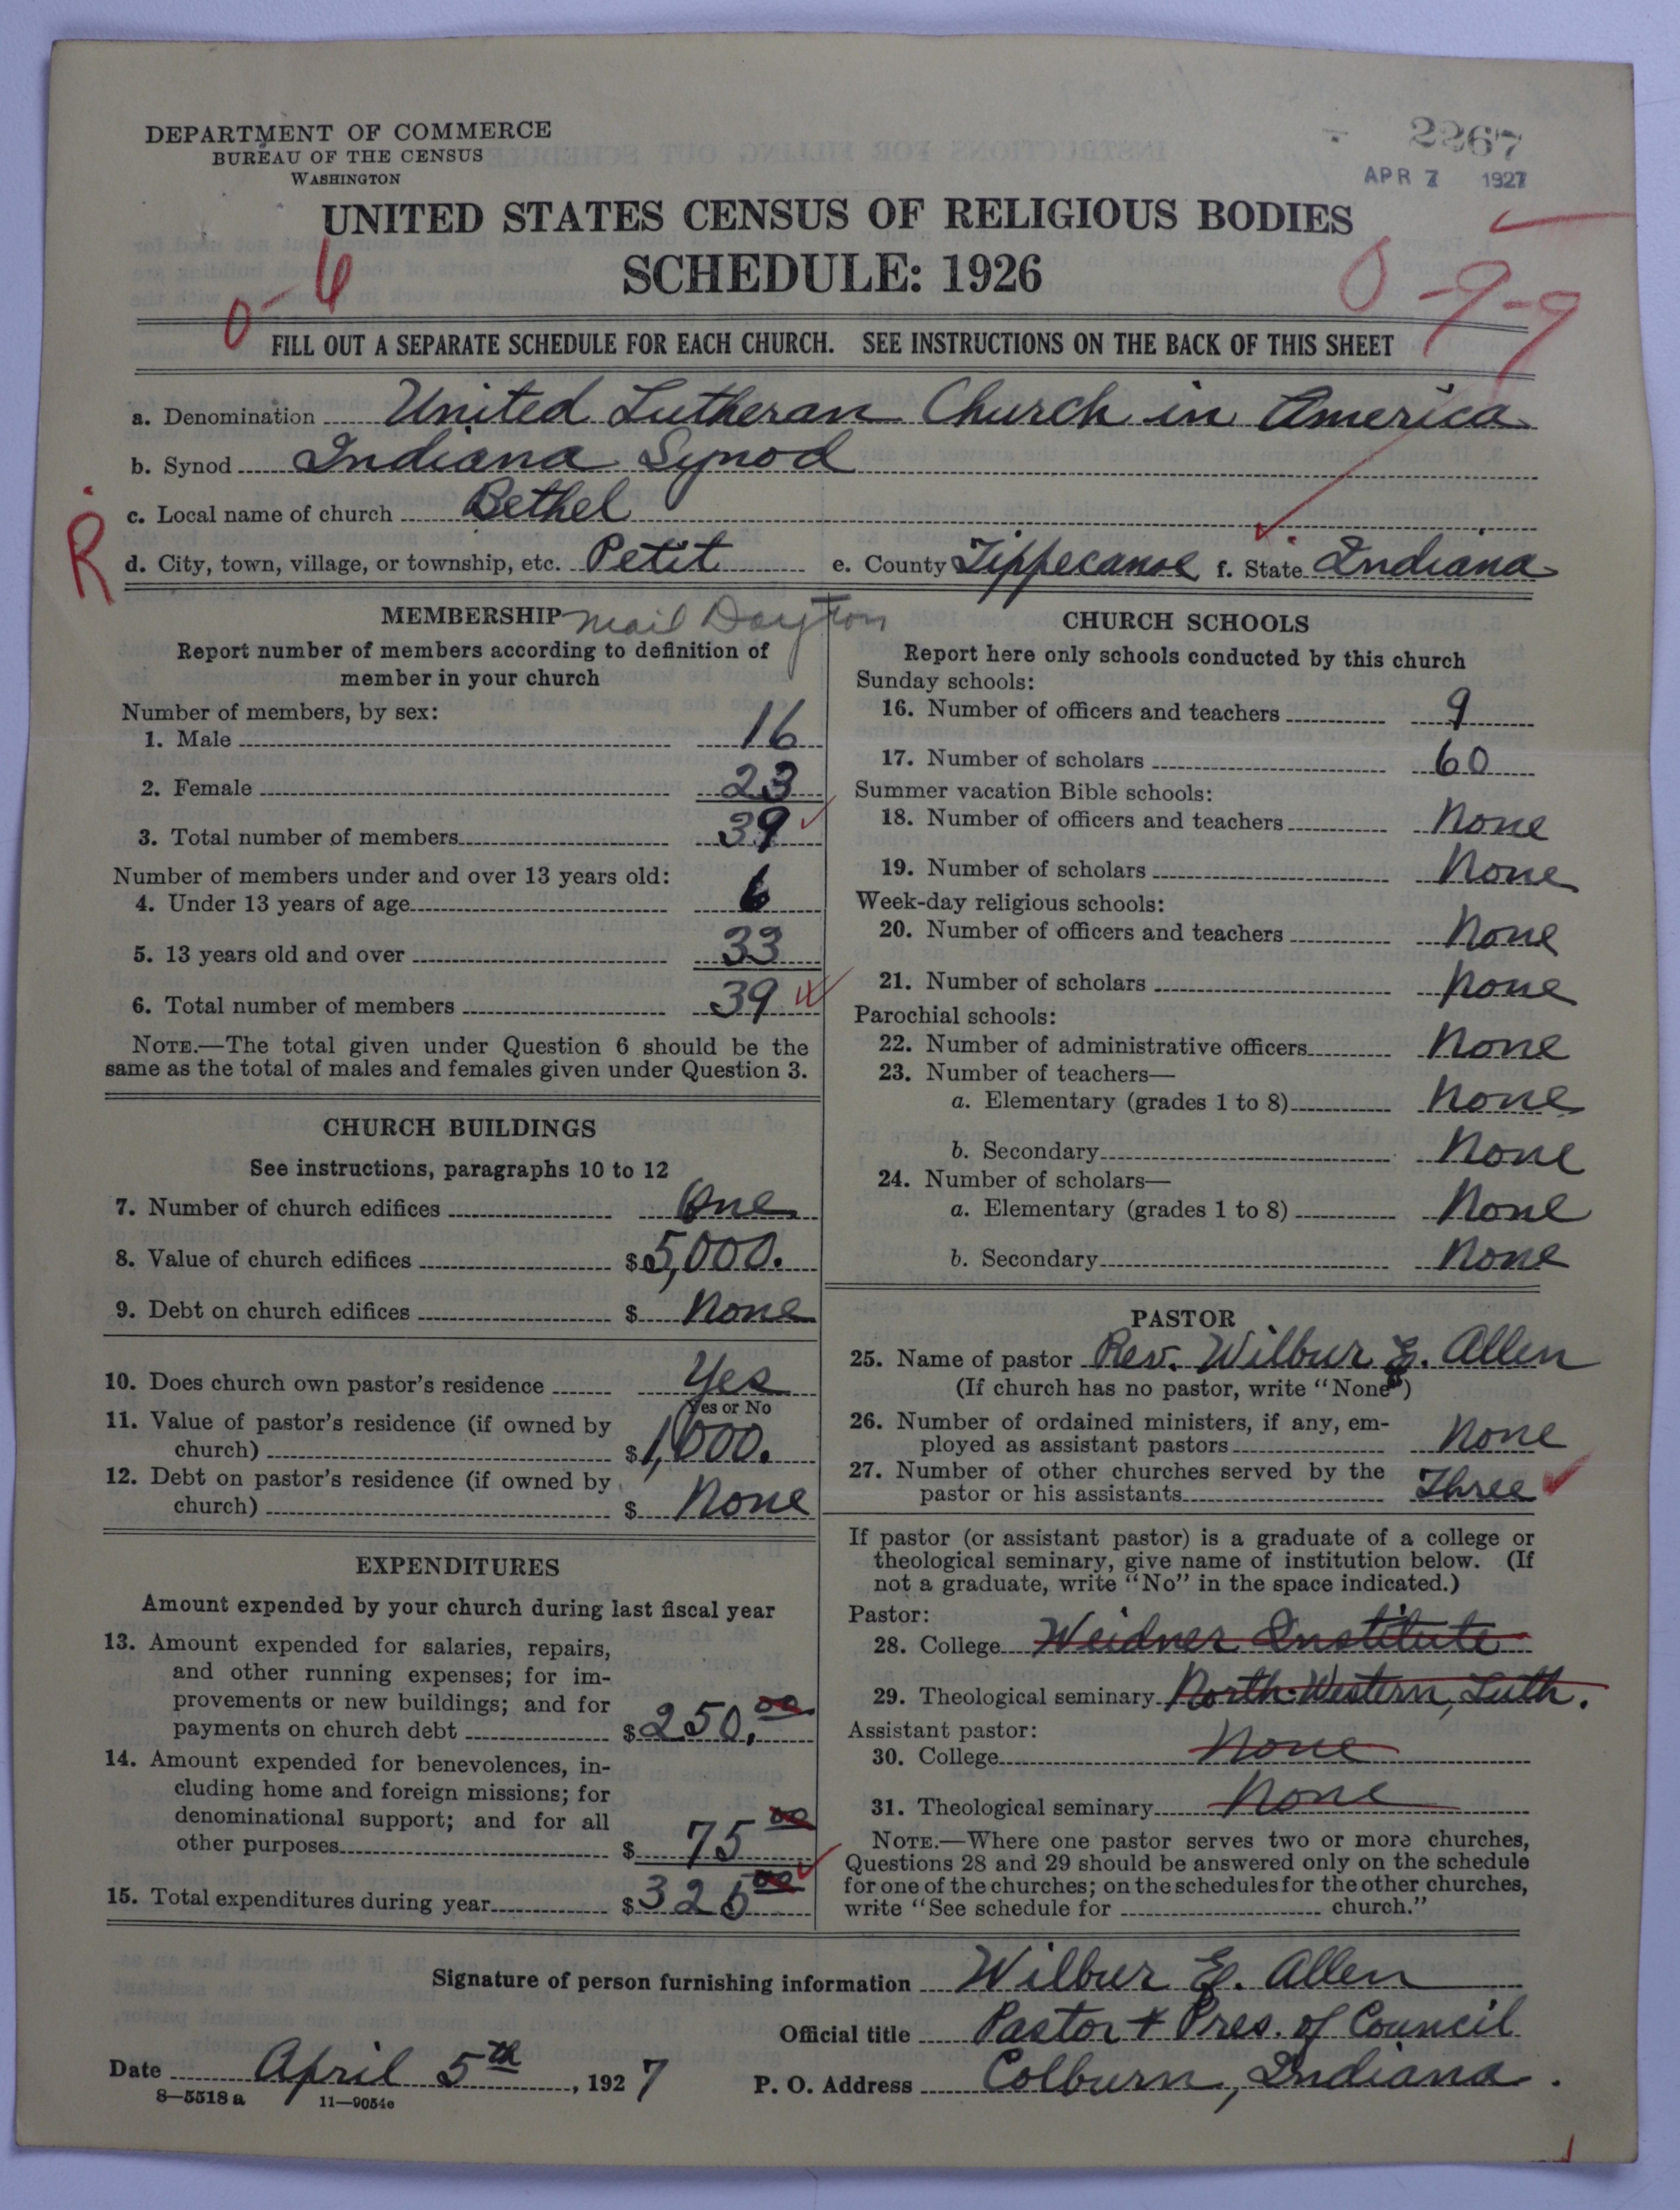 DEPARTMENT OF COMMERCE
BUREAU OF THE CENSUS
WASHINGTON
2267
APR 7 1927
UNITED STATES CENSUS OF RELIGIOUS BODIES
SCHEDULE: 1926
0-6
0-9-9
FILL OUT A SEPARATE SCHEDULE FOR EACH CHURCH. SEE INSTRUCTIONS ON THE BACK OF THIS SHEET
a. Denomination United Lutheran Church in America
b. Synod Indiana Synod
c. Local name of church Bethel
R
d. City, town, village, or township, etc. Petit e. County Tippecanoe f. State Indiana
MEMBERSHIP mail Dayton
Report number of members according to definition of
member in your church
Number of members, by sex:
1. Male 16
2. Female 23
3. Total number of members 39
Number of members under and over 13 years old:
4. Under 13 years of age 6
5. 13 years old and over 33
6. Total number of members 39
NOTE.—The total given under Question 6 should be the
same as the total of males and females given under Question 3.
CHURCH BUILDINGS
See instructions, paragraphs 10 to 12
7. Number of church edifices One
8. Value of church edifices $5,000.
9. Debt on church edifices $ None
10. Does church own pastor's residence Yes
Yes or No
11. Value of pastor's residence (if owned by
church) $1,000.
12. Debt on pastor's residence (if owned by
church) $ None
EXPENDITURES
Amount expended by your church during last fiscal year
13. Amount expended for salaries, repairs,
and other running expenses; for im-
provements or new buildings; and for
payments on church debt $250.00
14. Amount expended for benevolences, in-
cluding home and foreign missions; for
denominational support; and for all
other purposes $ 75 00
15. Total expenditures during year $325 00
CHURCH SCHOOLS
Report here only schools conducted by this church
Sunday schools:
16. Number of officers and teachers 9
17. Number of scholars 60
Summer vacation Bible schools:
18. Number of officers and teachers None
19. Number of scholars None
Week-day religious schools:
20. Number of officers and teachers None
21. Number of scholars None
Parochial schools:
22. Number of administrative officers None
23. Number of teachers—
a. Elementary (grades 1 to 8) None
b. Secondary None
24. Number of scholars—
a. Elementary (grades 1 to 8) None
b. Secondary None
PASTOR
25. Name of pastor Rev. Wilbur E. Allen
(If church has no pastor, write "None")
26. Number of ordained ministers, if any, em-
ployed as assistant pastors None
27. Number of other churches served by the
pastor or his assistants Three
If pastor (or assistant pastor) is a graduate of a college or
theological seminary, give name of institution below. (If
not a graduate, write "No" in the space indicated.)
Pastor:
28. College Weidner Institute
29. Theological seminary North-Western, Luth.
Assistant pastor:
30. College None
31. Theological seminary None
NOTE.—Where one pastor serves two or more churches,
Questions 28 and 29 should be answered only on the schedule
for one of the churches; on the schedules for the other churches,
write "See schedule for church."
Signature of person furnishing information Wilbur E. Allen
Official title Pastor + Pres. of Council
Date April 5th, 1927 P. O. Address Colburn, Indiana.
8—5518 a 11—9054e